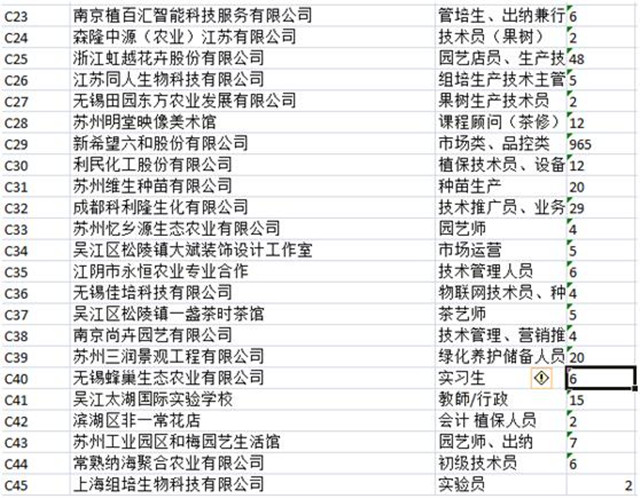 C23 南京植百汇智能科技服务有限公司 管培生、出纳兼行 6
C24 森隆中源（农业）江苏有限公司 技术员（果树） 2
C25 浙江虹越花卉股份有限公司 园艺店员、生产技 48
C26 江苏同人生物科技有限公司 组培生产技术主管 5
C27 无锡田园东方农业发展有限公司 果树生产技术员 2
C28 苏州明堂映像美术馆 课程顾问（茶修） 12
C29 新希望六和股份有限公司 市场类、品控类 965
C30 利民化工股份有限公司 植保技术员、设备 12
C31 苏州维生种苗有限公司 种苗生产 20
C32 成都科利隆生化有限公司 技术推广员、业务 29
C33 苏州忆乡源生态农业有限公司 园艺师 4
C34 吴江区松陵镇大斌装饰设计工作室 市场运营 5
C35 江阴市永恒农业专业合作 技术管理人员 6
C36 无锡佳培科技有限公司 物联网技术员、种 4
C37 吴江区松陵镇一盏茶时茶馆 茶艺师 5
C38 南京尚卉园艺有限公司 技术管理、营销推 4
C39 苏州三润景观工程有限公司 绿化养护储备人员 20
C40 无锡蜂巢生态农业有限公司 实习生 6
C41 吴江太湖国际实验学校 教师/行政 15
C42 滨湖区非一常花店 会计 植保人员 2
C43 苏州工业园区和梅园艺生活馆 园艺师、出纳 7
C44 常熟纳海聚合农业有限公司 初级技术员 6
C45 上海组培生物科技有限公司 实验员 2